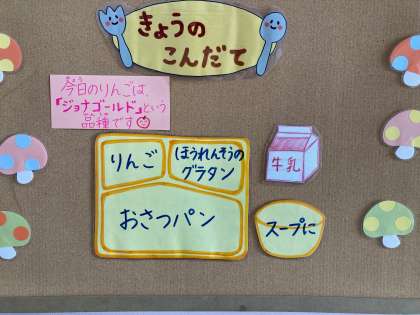 きょうの
こんだて
今日のりんごは、
「ジョナゴールド」という
品種です
りんご
ほうれんそうの
グラタン
おさつパン
牛乳
スープに